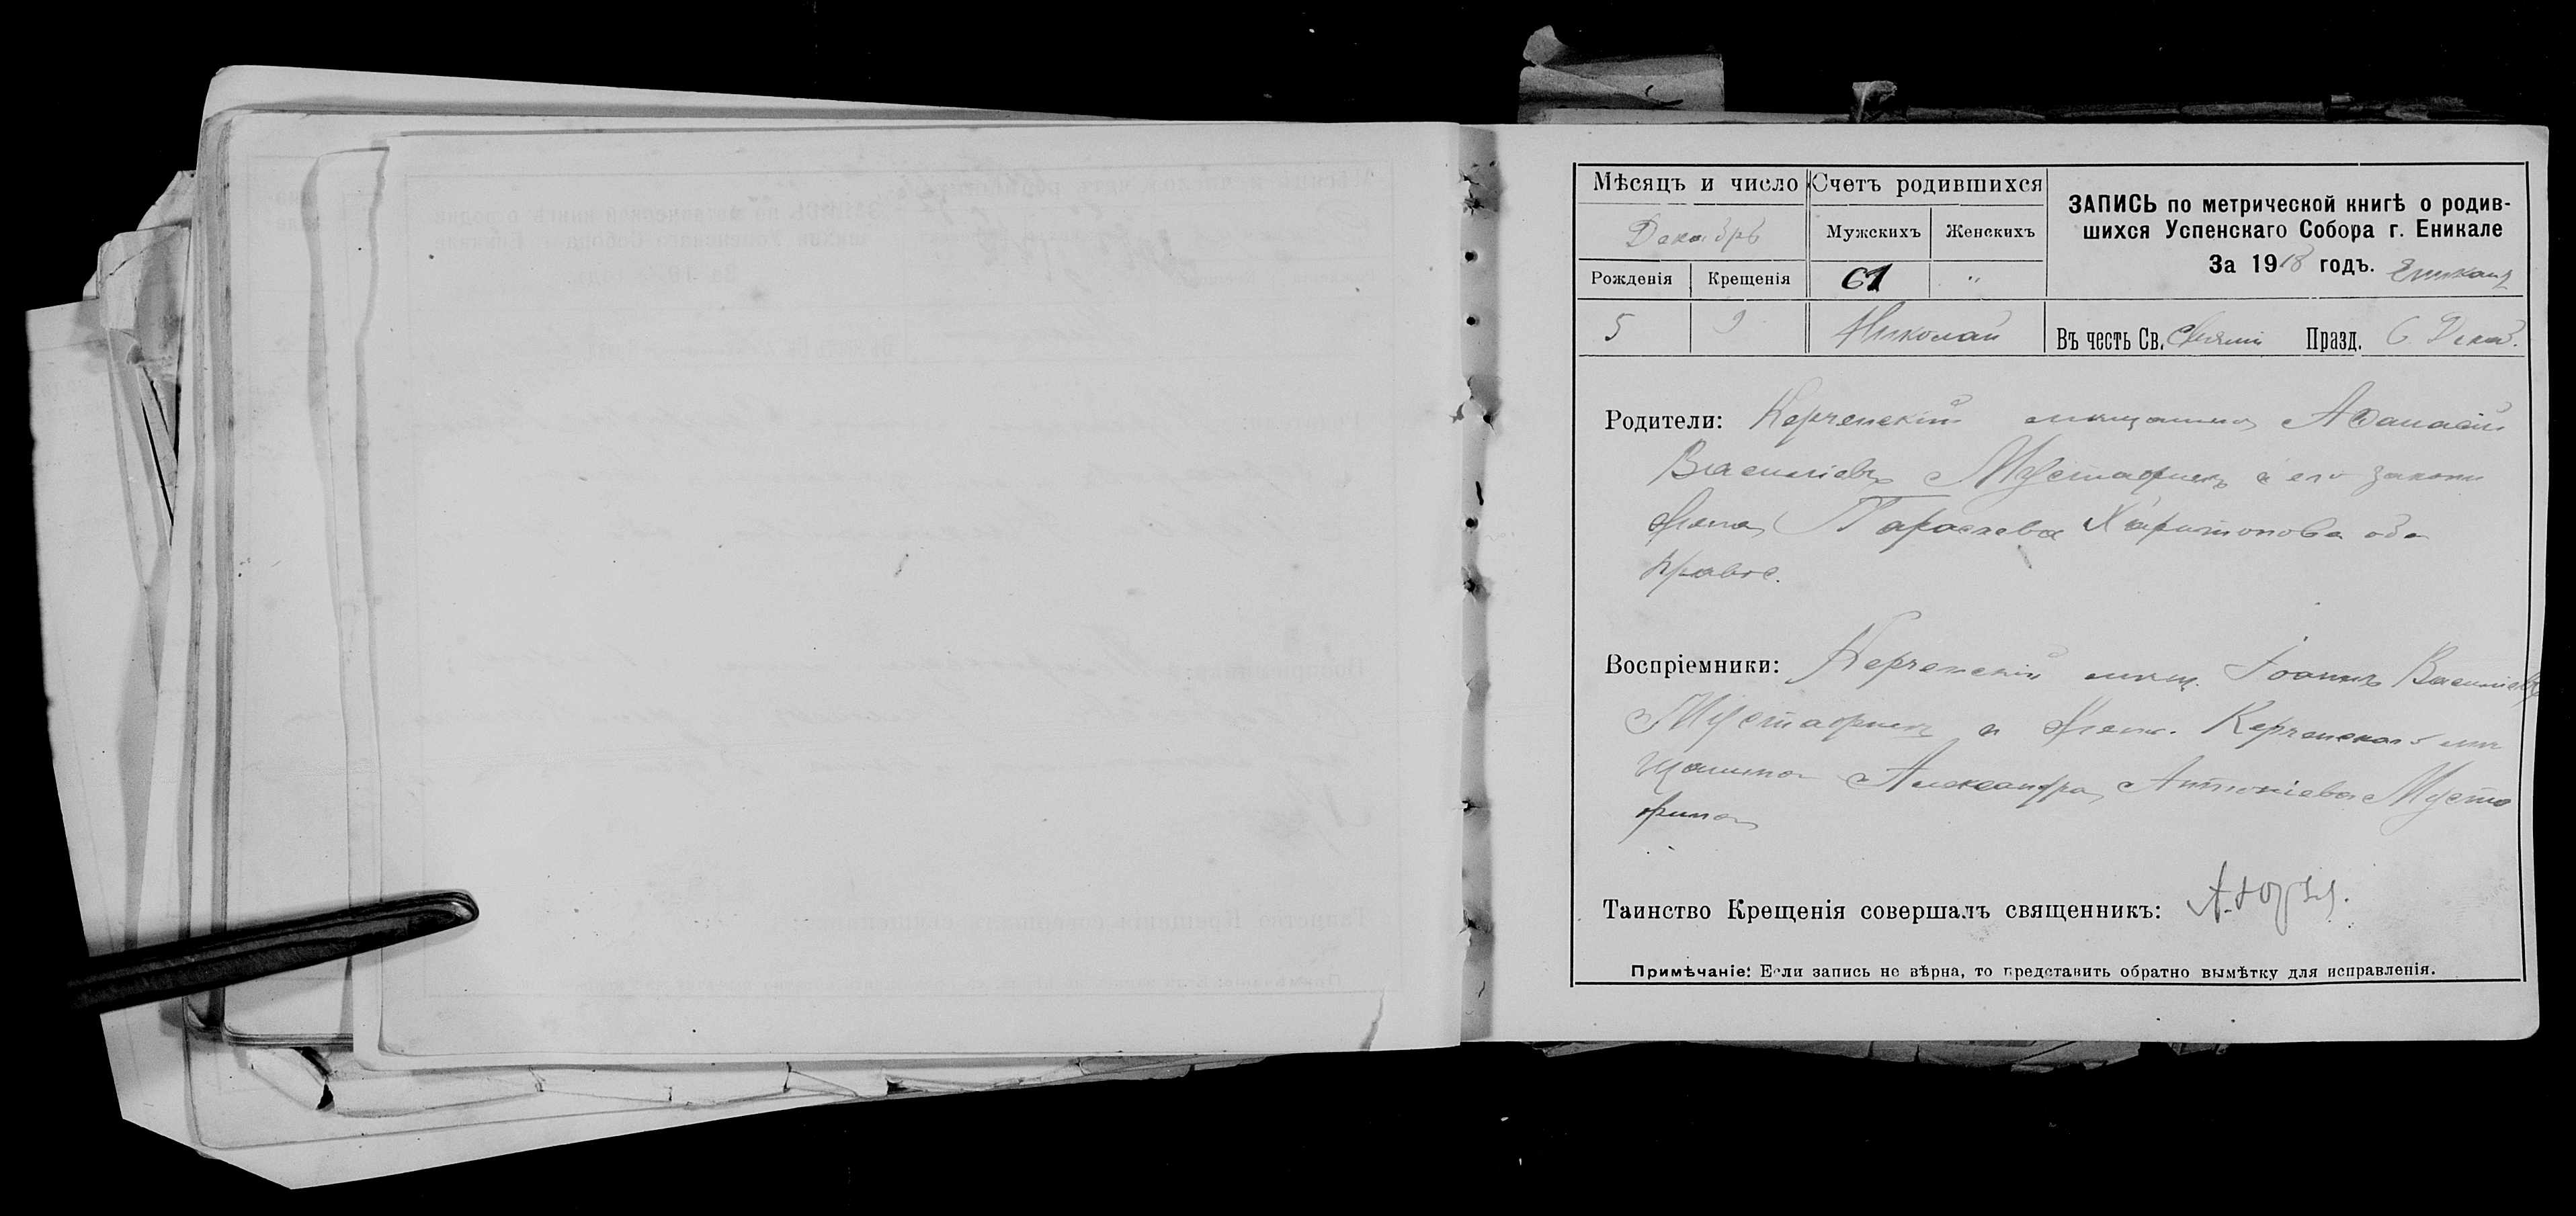 Мѣсяцъ и число
Счетъ родившихся
Декабрь
Мужскихъ
Женскихъ
Рожденія
Крещенія
61
"
ЗАПИСЬ по метрической книгѣ о родив-
шихся Успенскаго Собора г. Еникале
За 1918 годъ.
5
9
Николай
Въ честь Св. Празд. 6 Декаб.
Родители: Керченскій мѣщанинъ Афанасій
Василіевъ Мустафинъ и его законн
жена Параскева Харитонова оба
правос.
Воспріемники: Керченскій мѣщ. Іоаннъ Василіевъ
Мустафинъ и жена Керченскаго мѣ
щанина Александра Антоніева Муста
фина
Таинство Крещенія совершалъ священникъ:
Примѣчаніе: Если запись не вѣрна, то представить обратно вымѣтку для исправленія.